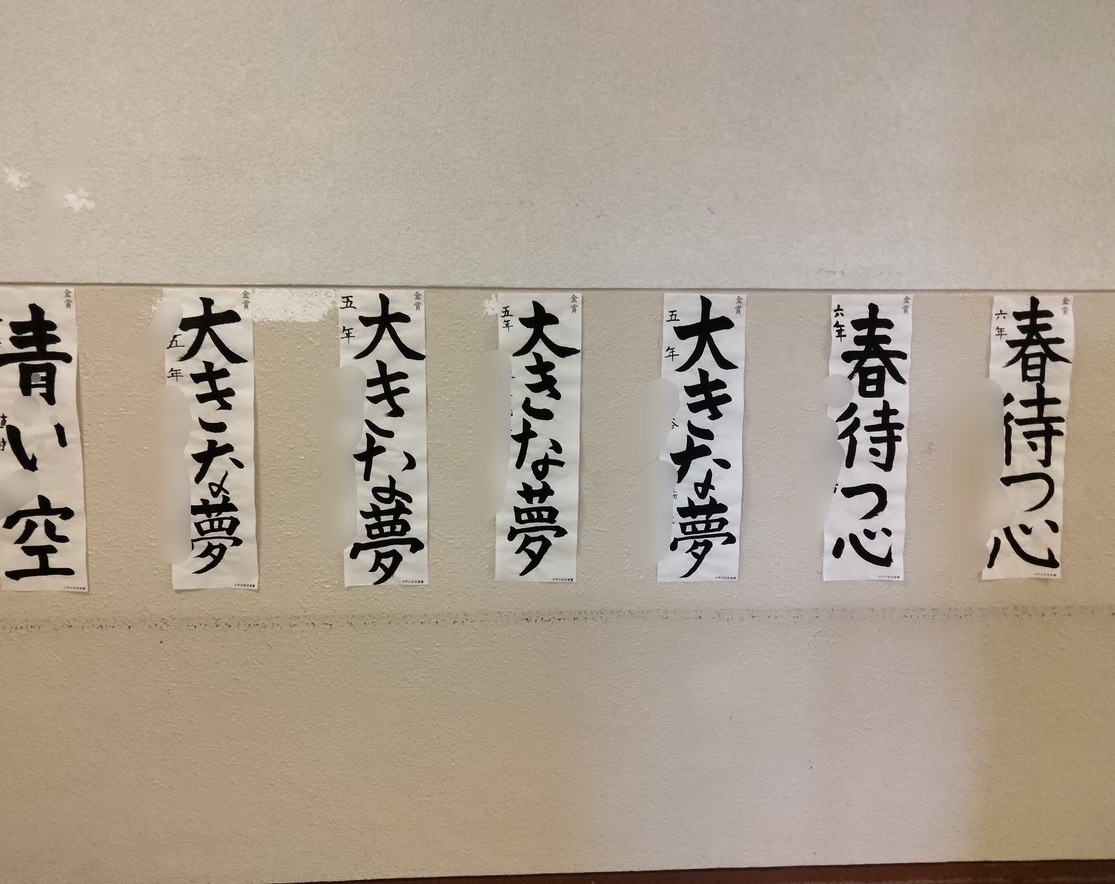 金賞
春待つ心
六年
金賞
春待つ心
六年
金賞
大きな夢
五年
金賞
大きな夢
五年
金賞
大きな夢
五年
金賞
大きな夢
五年
金賞
青い空